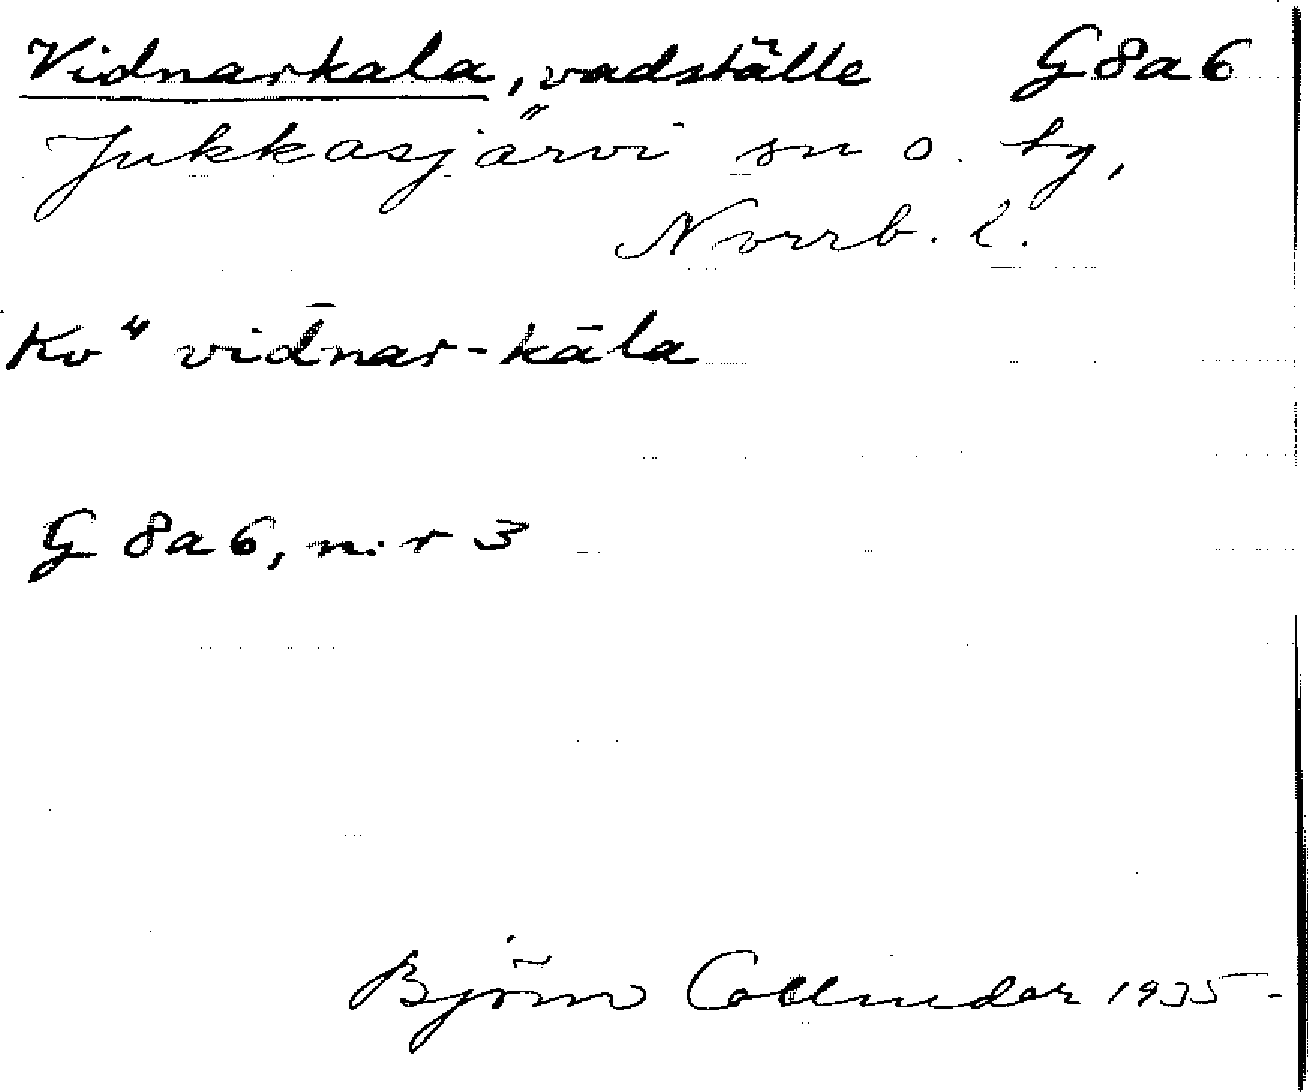 Vidnarkala, vadställe G8a6
Jukkasjärvi sn o. tg,
Norrb. l.
Kv" vid̄nar-kāla
G 8a6, n:r 3
Björn Collinder 1935